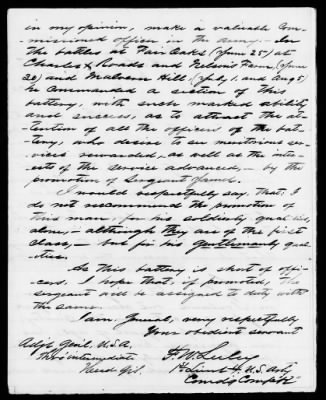 in my opinion, make a valuable com-
missioned officer in the army. In
the battles at Fair Oaks (June 25) at
Charles X Roads and Nelson's Farm, (June
30) and Malvern Hill (July 1. and Aug 5)
he commanded a section of this
battery, with such marked ability
and success, as to attract the at-
tention of all the officers of the bat-
tery, who desire to see meritorious ser-
vices rewarded, as well as the inter-
ests of the service advanced, by the
promotion of Sergeant
I would respectfully say, that, I
do not recommend the promotion of
this man, for his soldierly qualities,
alone, - although they are of the first
class, - but for his gentlemanly qua-
lities.
As this battery is short of offi-
cers, I hope that, if promoted, the
sergeant will be assigned to duty with
the same.
I am, General, very respectfully
Your obedient servant
Adjt. Genl. U.S.A.
Thro' intermediate
Head Qrs.
1st Lieut 4. U.S. Arty
Comd'g Comp'y K